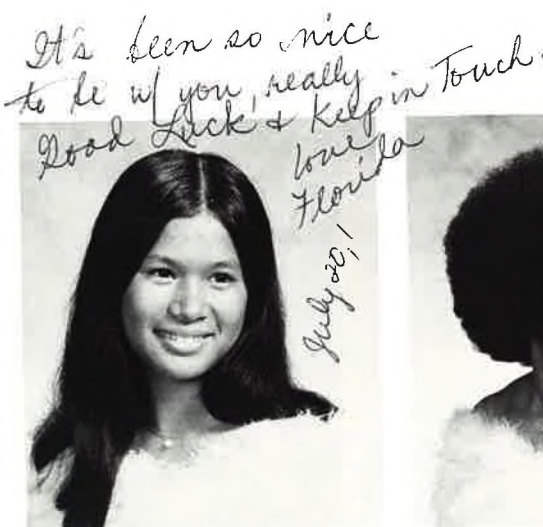 It's been so nice
to be w/ you, really
Good Luck & Keep in Touch.
Love
Florida
July 20, !